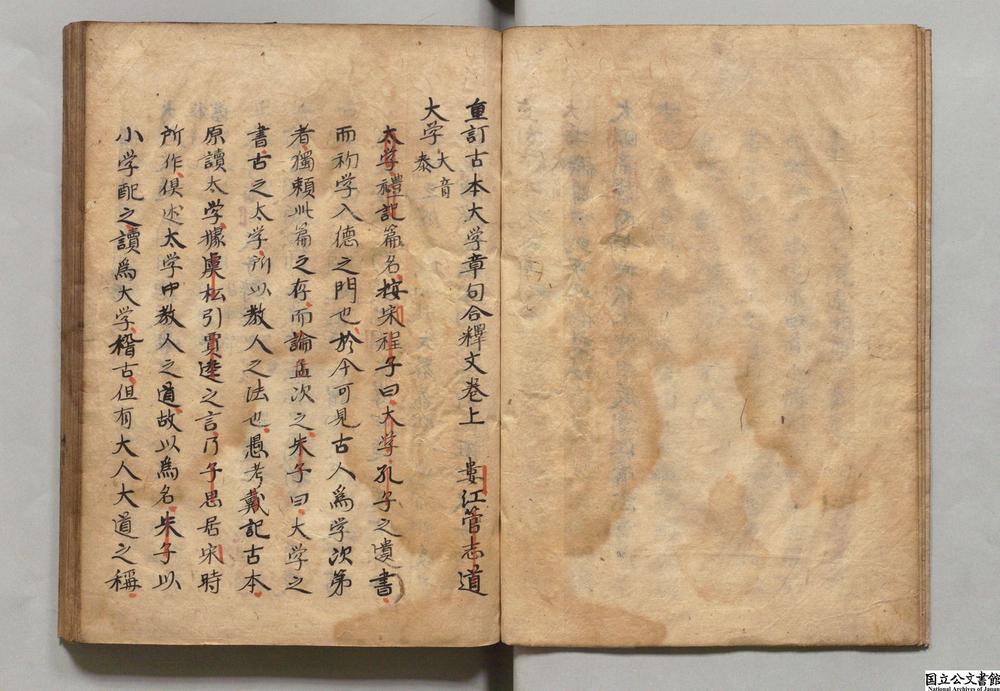 重訂古本大学章句合釋文卷上　婁江管志道
大学 大音泰
太学禮記篇名按宋程子曰大学孔子之遺書
而初学入德之門也於今可見古人為学次第
者獨頼此篇之存而論孟次之朱子曰大学之
書古之太学所以教人之法也愚考戴記古本
原讀太学據虞松引賈逵之言乃子思居宋時
所作倶述太学中教人之道故以為名朱子以
小学配之讀為大学稽古但有大人大道之稱
国立公文書館
National Archives of Japan